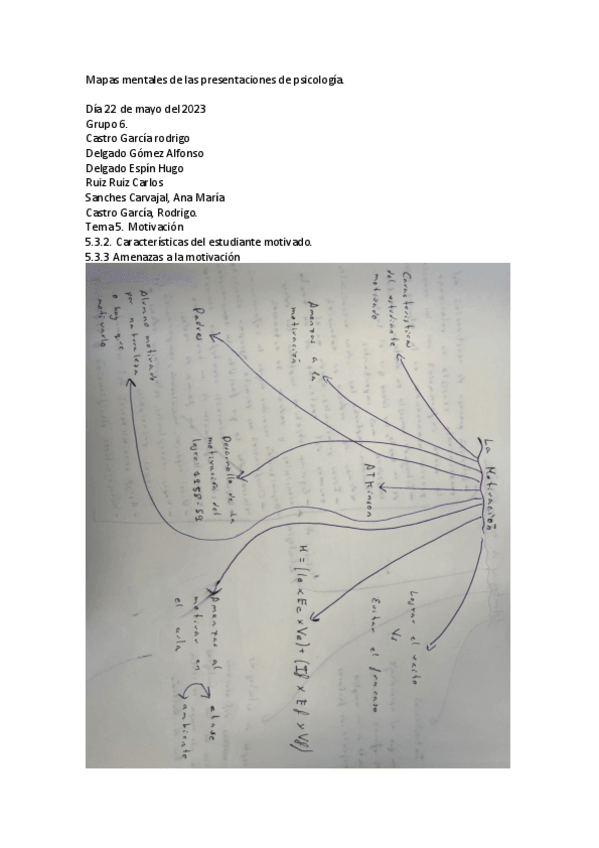 Mapas mentales de las presentaciones de psicología.
Día 22 de mayo del 2023
Grupo 6.
Castro García rodrigo
Delgado Gómez Alfonso
Delgado Espín Hugo
Ruiz Ruiz Carlos
Sanches Carvajal, Ana María
Castro García, Rodrigo.
Tema 5. Motivación
5.3.2. Características del estudiante motivado.
5.3.3 Amenazas a la motivación
La Motivación
Características
del estudiante
motivado
Amenazas a la
motivación
Padres
Alumno motivado
por naturaleza
o hay que
motivarlo
Desarrollo de la
motivación del
logro: 1958-59
ATKinson
Lograr el
Vs
Evitar el fracaso
M = (Io x Ec x Ve) + (If x Ef x Vf)
Amenazas al
motivar en
el aula
ambiente